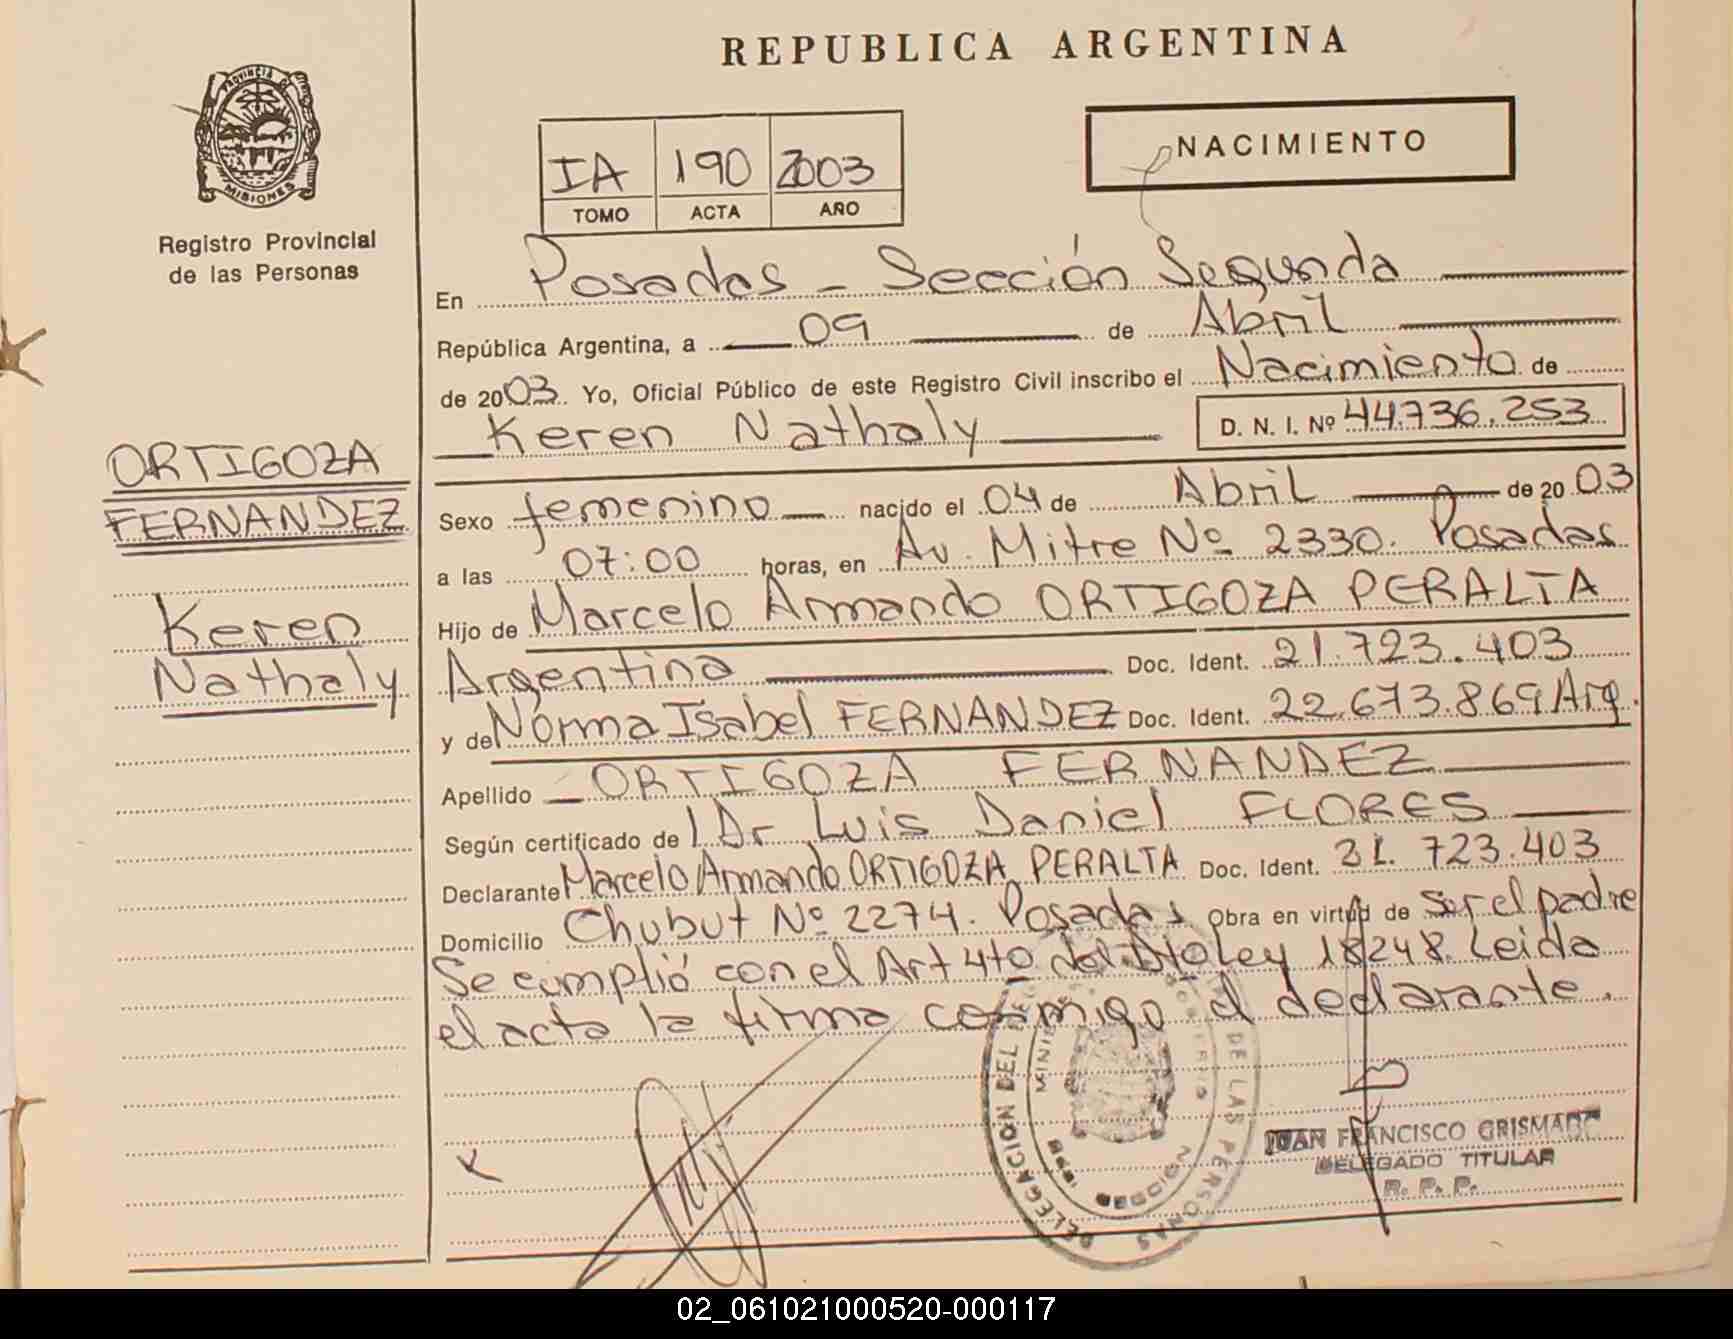 REPUBLICA ARGENTINA
PROVINCIA DE
MISIONES
Registro Provincial
de las Personas
IA 190 2003
TOMO ACTA AÑO
NACIMIENTO
ORTIGOZA
FERNANDEZ
Keren
Nathaly
En Posadas - Sección Segunda
República Argentina, a 09 de Abril
de 2003. Yo, Oficial Público de este Registro Civil inscribo el Nacimiento de
Keren Nathaly D. N. I. Nº 44.736.253
Sexo femenino nacido el 04 de Abril de 2003
a las 07:00 horas, en Av. Mitre Nº 2330. Posadas
Hijo de Marcelo Armando ORTIGOZA PERALTA
Argentina Doc. Ident. 21.723.403
y de Norma Isabel FERNANDEZ Doc. Ident. 22.673.869 Arg.
Apellido ORTIGOZA FERNANDEZ
Según certificado de l Dr Luis Daniel FLORES
Declarante Marcelo Armando ORTIGOZA PERALTA Doc. Ident. 21.723.403
Domicilio Chubut Nº 2274. Posadas Obra en virtud de ser el padre
Se cumplió con el Art 4to del Dto Ley 18248. Leida
el acta la firma conmigo el declarante.
DELEGACION DEL DE LAS PERSONAS
JUAN FRANCISCO
DELEGADO TITULAR
R. P. P.
02_061021000520-000117